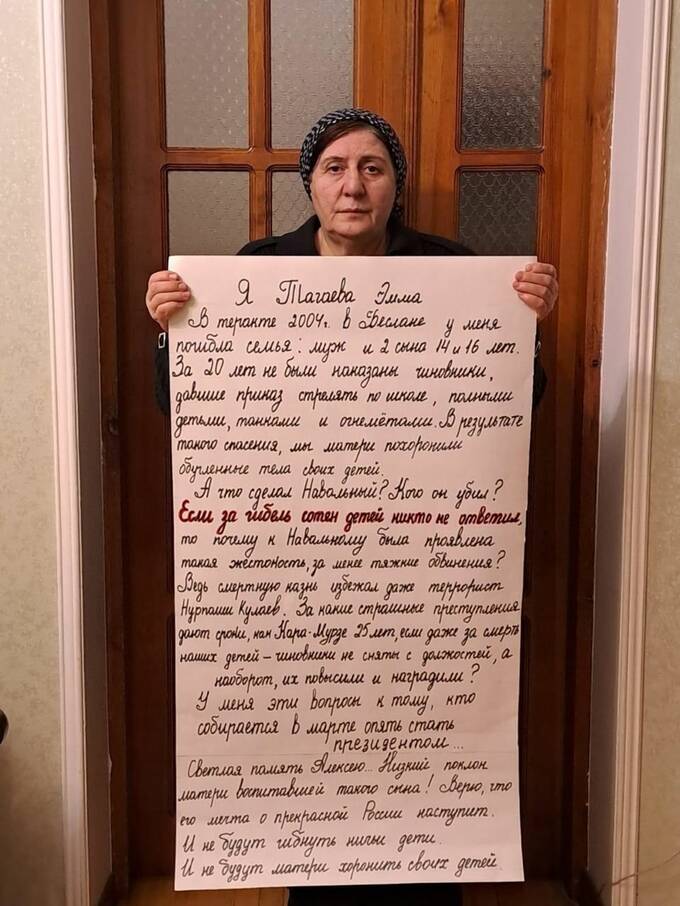 Я Тагаева Эмма
В теракте 2004г. в Беслане у меня
погибла семья: муж и 2 сына 14 и 16 лет.
За 20 лет не были наказаны чиновники,
давшие приказ стрелять по школе, полными
детьми, танками и огнемётами. В результате
такого спасения, мы матери похоронили
обугленные тела своих детей.
А что сделал Навальный? Кого он убил?
Если за гибель сотен детей никто не ответил,
то почему к Навальному была проявлена
такая жестокость, за менее тяжкие обвинения?
Ведь смертную казнь избежал даже террорист
Нурпаши Кулаев. За какие страшные преступления
дают сроки, как Кара-Мурзе 25 лет, если даже за смерть
наших детей – чиновники не сняты с должностей, а
наоборот, их повысили и наградили?
У меня эти вопросы к тому, кто
собирается в марте опять стать
президентом...
Светлая память Алексею... Низкий поклон
матери воспитавшей такого сына! Верю, что
его мечта о прекрасной России наступит.
И не будут гибнуть ничьи дети.
И не будут матери хоронить своих детей.